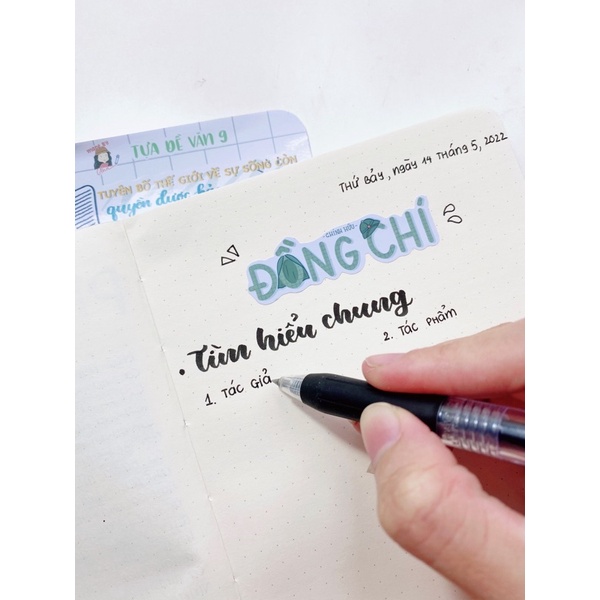 TỰA ĐỀ VĂN 9
TUYÊN BỐ THẾ GIỚI VỀ SỰ SỐNG CÒN
quyền được
THỨ BẢY, NGÀY 14 THÁNG 5, 2022
CHÍNH HỮU
ĐỒNG CHÍ
• Tìm hiểu chung
1. TÁC GIẢ
2. TÁC PHẨM